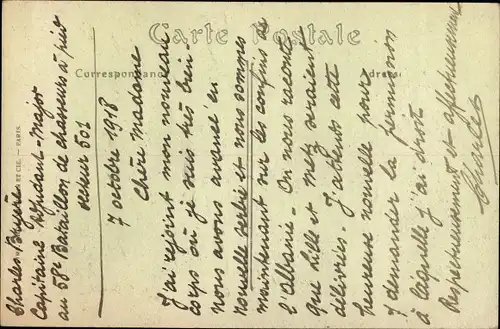 Carte Postale
Correspondance
ET CIE. — PARIS
Charles Bruyère
Capitaine Adjudant-Major
au 58e Bataillon de chasseurs à pied
secteur 501
7 octobre 1918
Chère Madame
J'ai rejoint mon nouveau
corps où je suis très bien.
nous avons avancé en
nouvelle serbie et nous sommes
maintenant sur les confins de
l'Albanie. On nous raconte
que Lille et Metz seraient
délivrées. J'attends cette
heureuse nouvelle pour
demander la permission
à laquelle j'ai droit
Respectueusement et affectueusement
Charles